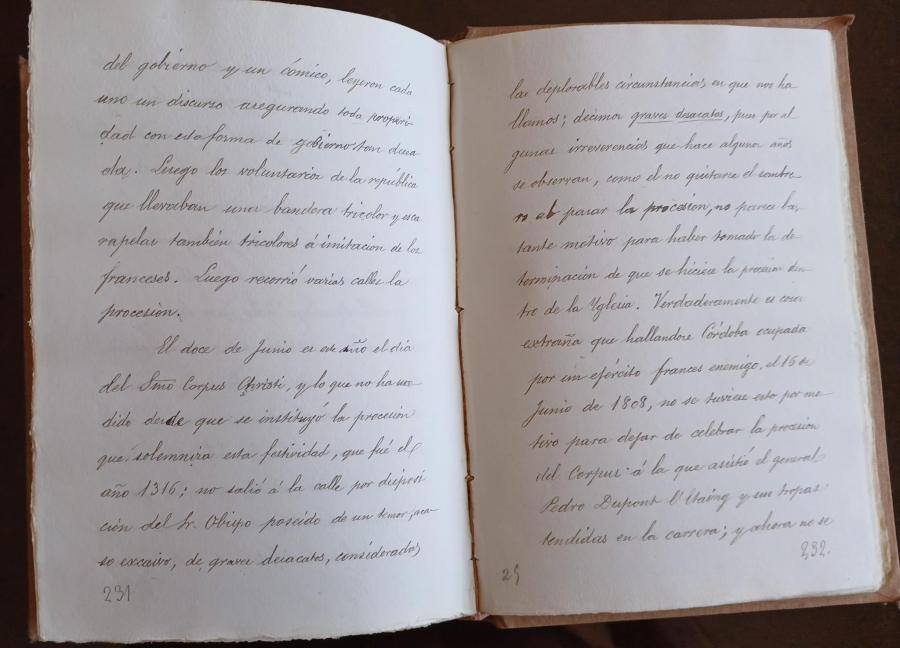 del gobierno y un cómico, leyeron cada
uno un discurso asegurando toda properi-
dad con esta forma de gobierno tan desea
da. Luego los voluntarios de la república
que llevaban una bandera tricolor y esca
rapelas también tricolores á imitacion de los
franceses. Luego recorrió varias calles la
procesion.
El doce de Junio es este año el dia
del Smo Corpus Christi, y lo que no ha suce-
dido desde que se instituyó la procesion
que solemniza esta festividad, que fué el
año 1316; no salió á la calle por disposi
ción del Sr. Obispo poseido de un temor, aca-
so excesivo, de graves desacatos, considerados
231
las deplorables circunstancias en que nos ha
llamos; decimos graves desacatos, pues por al
gunas irreverencias que hace algunos años
se observan, como el no quitarse el sombre
ro al pasar la procesion, no parecia bas-
tante motivo para haber tomado la de
terminación de que se hiciese la procesion den-
tro de la Yglesia. Verdaderamente es cosa
extraña que hallandose Córdoba ocupada
por un ejército frances enemigo, el 16 de
Junio de 1808, no se tuviese esto por mo
tivo para dejar de celebrar la procesion
del Corpus á la que asistió el general
Pedro Dupont L'Etaing y sus tropas
tendidas en la carrera; y ahora no se
232.